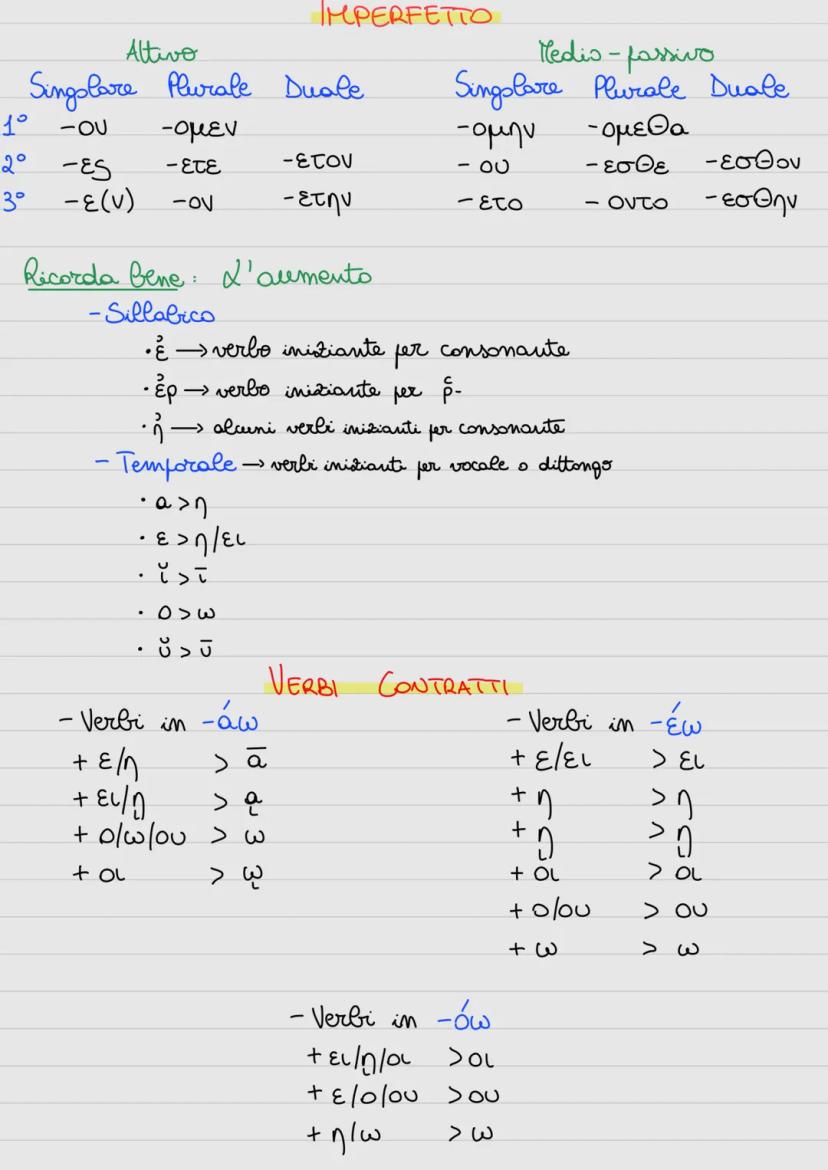 IMPERFETTO
Attivo Medio-passivo
Singolare Plurale Duale Singolare Plurale Duale
1° -ον -ομεν -ομην -ομεθα
2° -ες -ετε -ετον -ου -εσθε -εσθον
3° -ε(ν) -ον -ετην -ετο -οντο -εσθην
Ricorda bene: L'aumento
- Sillabico
· ἐ → verbo iniziante per consonante
· ἐρ → verbo iniziante per ῥ-
· ἠ → alcuni verbi inizianti per consonante
- Temporale → verbi inizianti per vocale o dittongo
· α > η
· ε > η/ει
· ῐ > ῑ
· ο > ω
· ῠ > ῡ
VERBI CONTRATTI
- Verbi in -άω - Verbi in -έω
+ ε/η > ᾱ + ε/ει > ει
+ ει/ῃ > ᾳ + η > η
+ ο/ω/ου > ω + ῃ > ῃ
+ οι > ῳ + οι > οι
+ ο/ου > ου
+ ω > ω
- Verbi in -όω
+ ει/ῃ/οι > οι
+ ε/ο/ου > ου
+ η/ω > ω